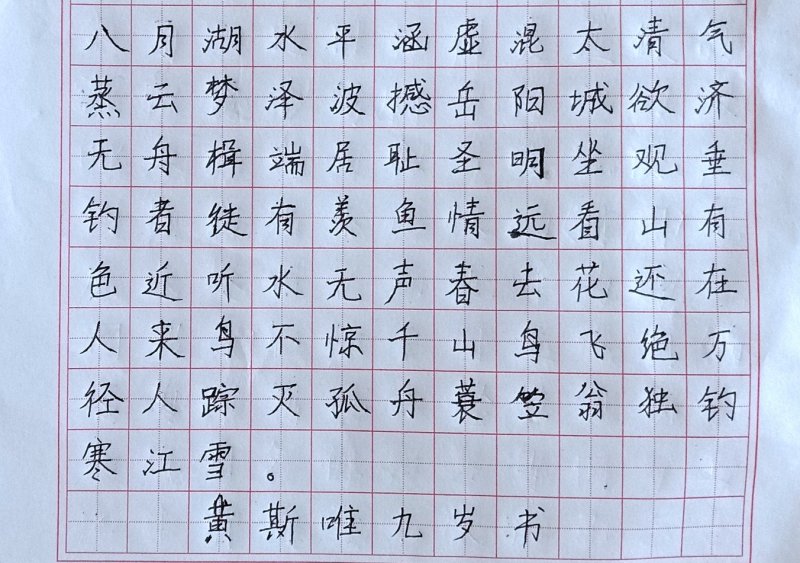 八月湖水平涵虚混太清气
蒸云梦泽波撼岳阳城欲济
无舟楫端居耻圣明坐观垂
钓者徒有羡鱼情远看山有
色近听水无声春去花还在
人来鸟不惊千山鸟飞绝万
径人踪灭孤舟蓑笠翁独钓
寒江雪。
黄斯唯九岁书